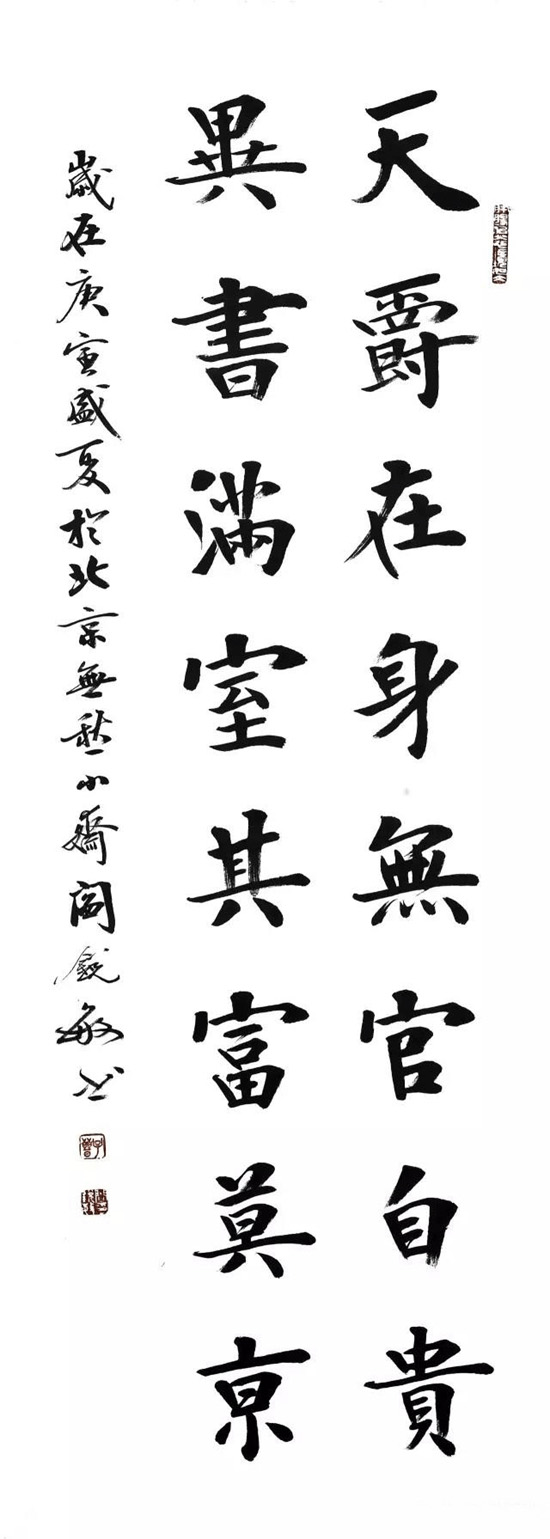 天爵在身無官自貴
異書滿室其富莫京
歲在庚寅盛夏於北京無愁小齋閻銳敏書